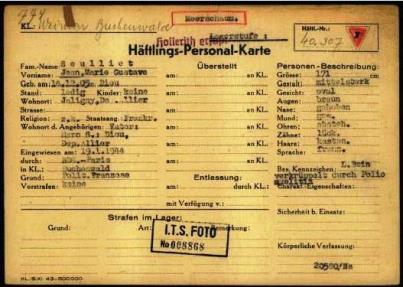 KL.: Weimar Buchenwald
Meerschaum.
Hollerith erfasst
Häftl.-Nr.:
40,307
Häftlings-Personal-Karte
Fam.-Name: Seulliet
Vorname: Jean Marie Gustave
Geb. am: 14.12.05 in: Diou
Stand: ledig Kinder: keine
Wohnort: Jaligny, Dep. Allier
Strasse:
Religion: r.k. Staatsang.: Frankr.
Wohnort d. Angehörigen: Vater:
Herm S., Diou,
Dep. Allier
Eingewiesen am: 19.1.1944
durch: Paris
in KL.: Buchenwald
Grund: Polit. Franzose
Vorstrafen: keine
Überstellt
am: an KL.:
am: an KL.:
am: an KL.:
am: an KL.:
am: an KL.:
am: an KL.:
Entlassung:
am: durch KL.:
mit Verfügung v.:
Personen-Beschreibung:
Grösse: 171 cm
Gestalt: mittelstark
Gesicht: oval
Augen: braun
Nase: gebogen
Mund: gew.
Ohren: absteh.
Zähne: lück.
Haare: kastan.
Sprache: franz.
Bes. Kennzeichen: L. Bein
verkrüppelt durch Polio
Charakt.-Eigenschaften:
Sicherheit b. Einsatz:
Körperliche Verfassung:
Strafen im Lager:
Grund: Art: Bemerkung:
I.T.S. FOTO
No 008868
KL/5/XI. 43-500000